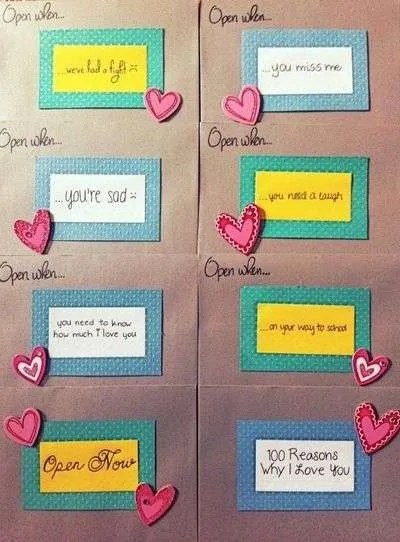 Open when...
...we've had a fight :(
Open when...
...you miss me
Open when...
...you're sad :(
Open when...
...you need a laugh
Open when...
you need to know
how much I love you
Open when...
...on your way to school
Open Now
100 Reasons
Why I Love You